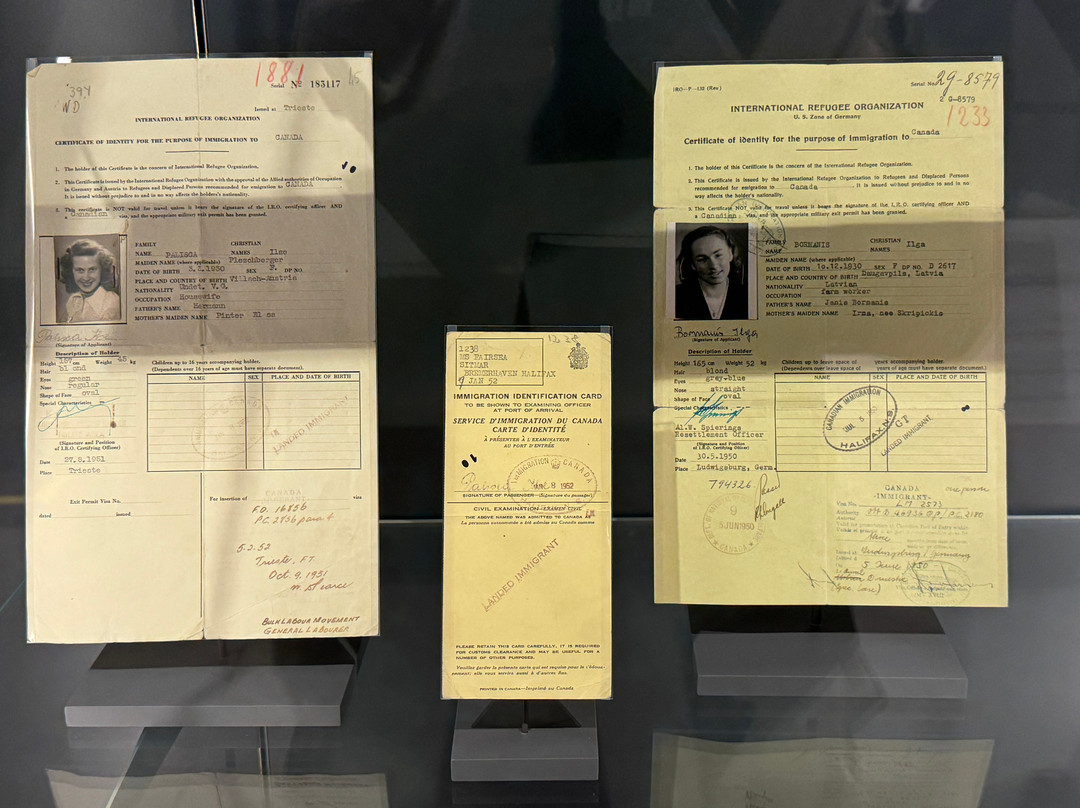 39.4
ND
1881
Serial Nº 183117
15
Issued at Trieste
INTERNATIONAL REFUGEE ORGANIZATION
CERTIFICATE OF IDENTITY FOR THE PURPOSE OF IMMIGRATION TO CANADA
1. The holder of this Certificate is the concern of International Refugee Organization.
2. This Certificate is issued by the International Refugee Organization with the approval of the Allied authorities of Occupation
in Germany and Austria to Refugees and Displaced Persons recommended for emigration to CANADA
It is issued without prejudice to and in no way affects the holder's nationality.
3. This certificate is NOT valid for travel unless it bears the signature of the I.R.O. certifying officer AND
a Canadian visa, and the appropriate military exit permit has been granted.
FAMILY
NAME PALISCA
CHRISTIAN
NAMES Ilse
MAIDEN NAME (where applicable) Pleschberger
DATE OF BIRTH 3.2.1930 SEX F. DP NO.
PLACE AND COUNTRY OF BIRTH Villach-Austria
NATIONALITY Undet. V.G.
OCCUPATION Housewife
FATHER'S NAME Hermann
MOTHER'S MAIDEN NAME Pinter Else
(Signature of Applicant)
Description of Holder
Height 167 cm Weight 65 kg
Hair blond
Eyes green
Nose regular
Shape of Face oval
Special Characteristics
Children up to 16 years accompanying holder.
(Dependents over 16 years of age must have separate document).
NAME SEX PLACE AND DATE OF BIRTH
LANDED IMMIGRANT
(Signature and Position
of I.R.O. Certifying Officer)
Date 27.8.1951
Place Trieste
Exit Permit Visa No.
For insertion of CANADA visa
dated issued
F.D. 16856
P.C. 2856 para 4
5.2.52
Trieste, FT
Oct 9, 1951
M. Pearce
BULK LABOUR MOVEMENT
GENERAL LABOURER
1238
MS FAIRSEA
SITMAR
BREMERHAVEN HALIFAX
9 JAN 52
IMMIGRATION IDENTIFICATION CARD
TO BE SHOWN TO EXAMINING OFFICER
AT PORT OF ARRIVAL
SERVICE D'IMMIGRATION DU CANADA
CARTE D'IDENTITÉ
À PRÉSENTER À L'EXAMINATEUR
AU PORT D'ENTRÉE
IMMIGRATION CANADA
8 1952
SIGNATURE OF PASSENGER—(Signature du passager)
CIVIL EXAMINATION—EXAMEN CIVIL
THE ABOVE NAMED WAS ADMITTED TO CANADA
La personne susnommée a été admise au Canada comme
LANDED IMMIGRANT
PLEASE RETAIN THIS CARD CAREFULLY, IT IS REQUIRED
FOR CUSTOMS CLEARANCE AND MAY BE USEFUL FOR A
NUMBER OF OTHER PURPOSES.
Veuillez garder la présente carte qui est requise pour le dédouanement; elle vous servira aussi à d'autres fins.
PRINTED IN CANADA—Imprimé au Canada
IRO—F—132 (Rev.)
Serial No. 29-8579
2 G-8579
1233
INTERNATIONAL REFUGEE ORGANIZATION
U. S. Zone of Germany
Certificate of identity for the purpose of immigration to Canada
1. The holder of this Certificate is the concern of the International Refugee Organization.
2. This Certificate is issued by the International Refugee Organization to Refugees and Displaced Persons
recommended for emigration to Canada It is issued without prejudice to and in no
way affects the holder's nationality.
3. This Certificate is NOT valid for travel unless it bears the signature of the I.R.O. certifying officer AND
a Canadian visa, and the appropriate military exit permit has been granted.
FAMILY
NAME BORMANIS
CHRISTIAN
NAMES Ilga
MAIDEN NAME (where applicable)
DATE OF BIRTH 10.12.1930 SEX F DP NO. D 2617
PLACE AND COUNTRY OF BIRTH Daugavpils, Latvia
NATIONALITY Latvian
OCCUPATION farm worker
FATHER'S NAME Janis Bormanis
MOTHER'S MAIDEN NAME Irma, nee Skripickis
Bormanis Ilga
(Signature of Applicant)
Description of Holder
Height 165 cm Weight 52 kg
Hair blond
Eyes grey-blue
Nose straight
Shape of Face oval
Special Characteristics
Children up to leave space of years accompanying holder.
(Dependents over years of age must have separate document).
NAME SEX PLACE AND DATE OF BIRTH
CANADIAN IMMIGRATION
HALIFAX N.S.
GT
LANDED IMMIGRANT
Al.W. Spierings
Resettlement Officer
(Signature and Position
of I.R.O. Certifying Officer)
Date 30.5.1950
Place Ludwigsburg, Germ.
794326
9
5 JUN 1950
CANADA
CANADA
-IMMIGRANT-
Visa No.
Authority
5 June 1950
Domestic